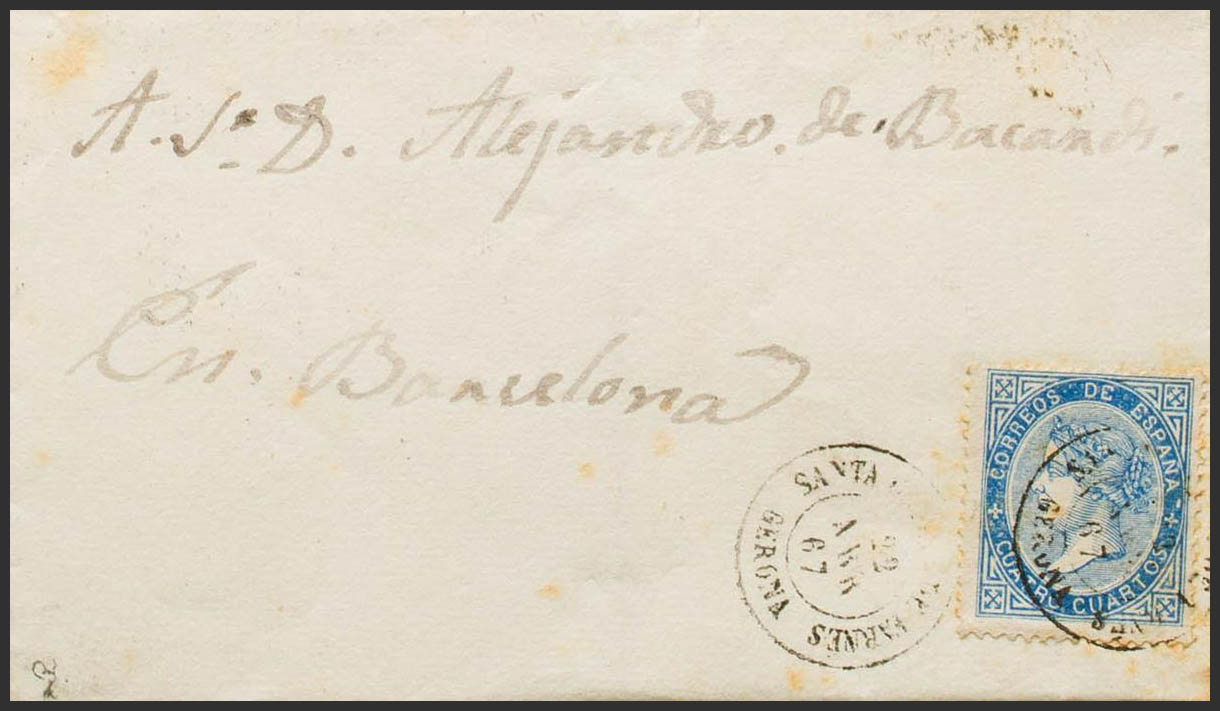 A. Sr. D. Alejandro. de. Bacardi.
En. Barcelona
SANTA
DE FARNES
GERONA
22
ABR
67
CORREOS DE ESPAÑA
CUATRO CUARTOS
GERONA
67